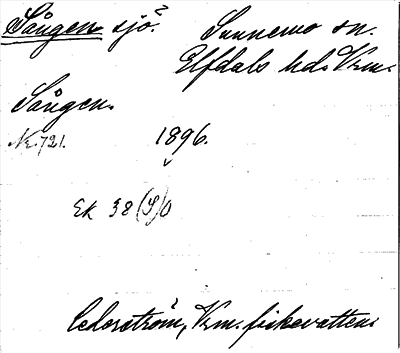 Sången sjö? Sunnemo sn.
Elfdals hd. Vrm.
Sången.
Nr. 721. 1896.
EK 38 (S)O
Cederström, Vrm. fiskevatten.